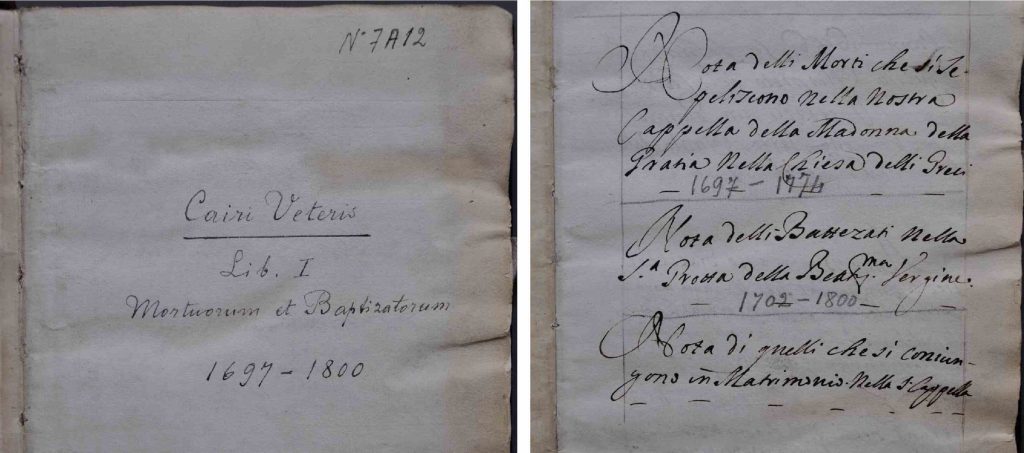 N° 7A12
Cairi Veteris
Lib. I
Mortuorum et Baptizatorum
1697 - 1800
Nota delli Morti che si Se
peliscono nella Nostra
Cappella della Madonna della
Gratia nella Chiesa delli Greci
1697 - 1774
Nota delli Battezati nella
S.ª Grotta della Beatis.ma Vergine.
1702 - 1800
Nota di quelli che si coniun-
gono in Matrimonio nella S. Cappella